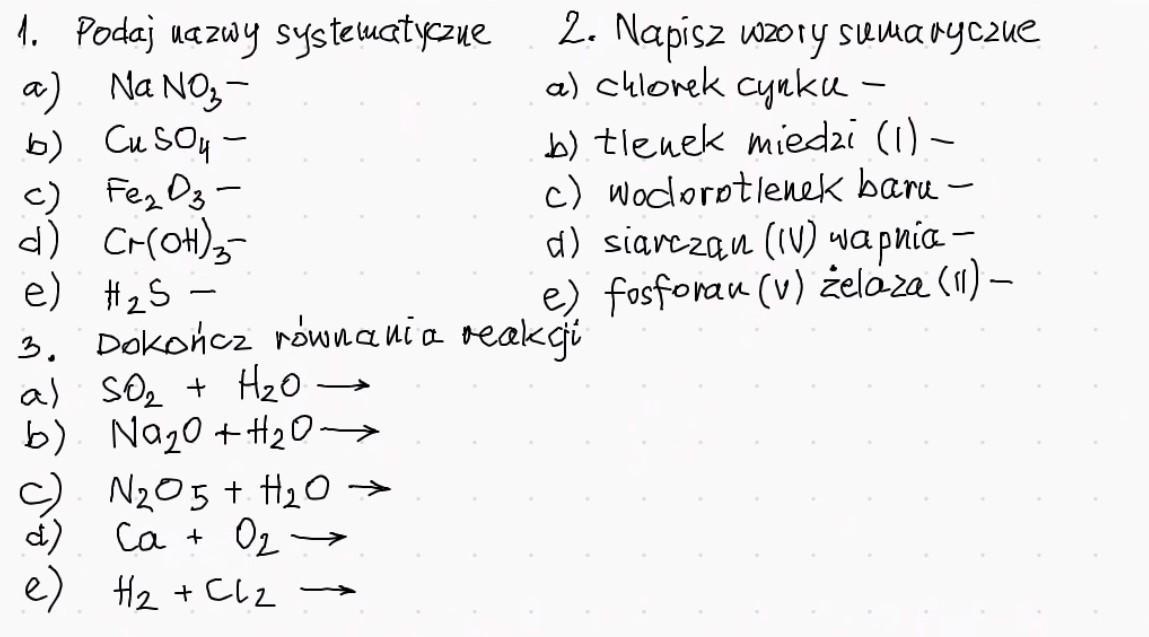 1. Podaj nazwy systematyczne
a) NaNO₃ –
b) CuSO₄ –
c) Fe₂O₃ –
d) Cr(OH)₃ –
e) H₂S –
2. Napisz wzory sumaryczne
a) chlorek cynku –
b) tlenek miedzi (I) –
c) wodorotlenek baru –
d) siarczan (IV) wapnia –
e) fosforan (V) żelaza (II) –
3. Dokończ równania reakcji
a) SO₂ + H₂O →
b) Na₂O + H₂O →
c) N₂O₅ + H₂O →
d) Ca + O₂ →
e) H₂ + Cl₂ →